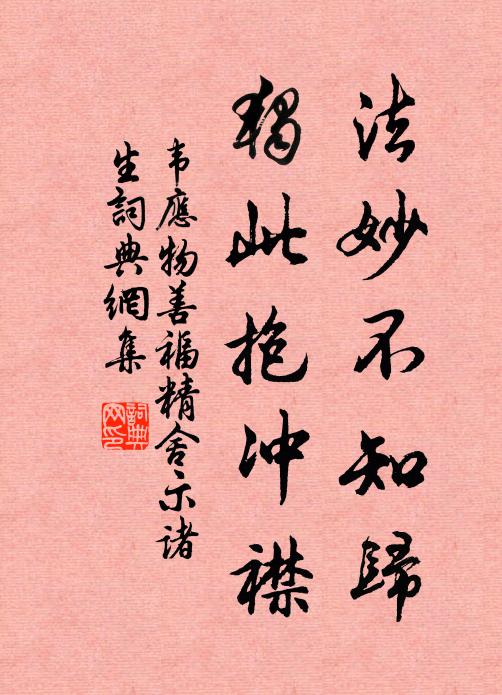 法妙不知歸
獨此抱冲襟
韦應物善福精舍示诸
生詞典網集
詞典网印